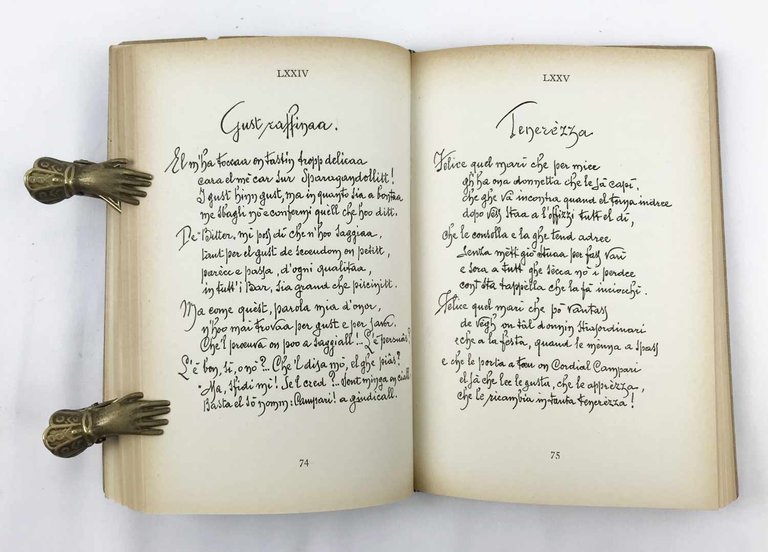 LXXIV
Gust raffinaa.
El m'ha toccaa on tastin tropp delicaa
cara el mè car sur Sparagandollitt!
I gust hinn gust, ma in quanto sia a bontaa
me sbagli nò e confermi quèll che hoo ditt.
De Bitter, mi poss dì che n'hoo saggiaa,
tant per el gust de scoeudom on petitt,
parècc e passa, d'ogni qualitaa,
in tutt'i Bar, sia grand che piscinitt.
Ma come quèst, parola mia d'onor,
n'hoo mai trovaa per gust e per savor.
Che'l proeuva on poo a saggiall!... L'è persuàs?
L'è bon, sì, o nò?... Che'l disa mò, el ghe piàs?
"Ma, sfidi mì! Se'l cred?... minga on
Basta el sò nomm: Campari! a giudicall.
74
LXXV
Tenerèzza
Felice quel marì che per miee
gh'ha ona donnetta che le sà capì,
che ghe và incontra quand el torna indree
dopo vèss staa a l'offizzi tutt el dì,
che le consolla e la ghe tend adree
senza mètt giò stuaa per fass varì
e sora a tutt ghe sècca nò i perdee
cont sta rappella che la fà inciochì.
Felice quel marì che pò vantass
de vègh on tal donnin straordinari
e che a la festa, quand le mènna a spass
e che le porta a toeu on Cordial Campari
el sà che lee le gusta, che le apprèzza,
che le ricambia in tanta tenerèzza!
75